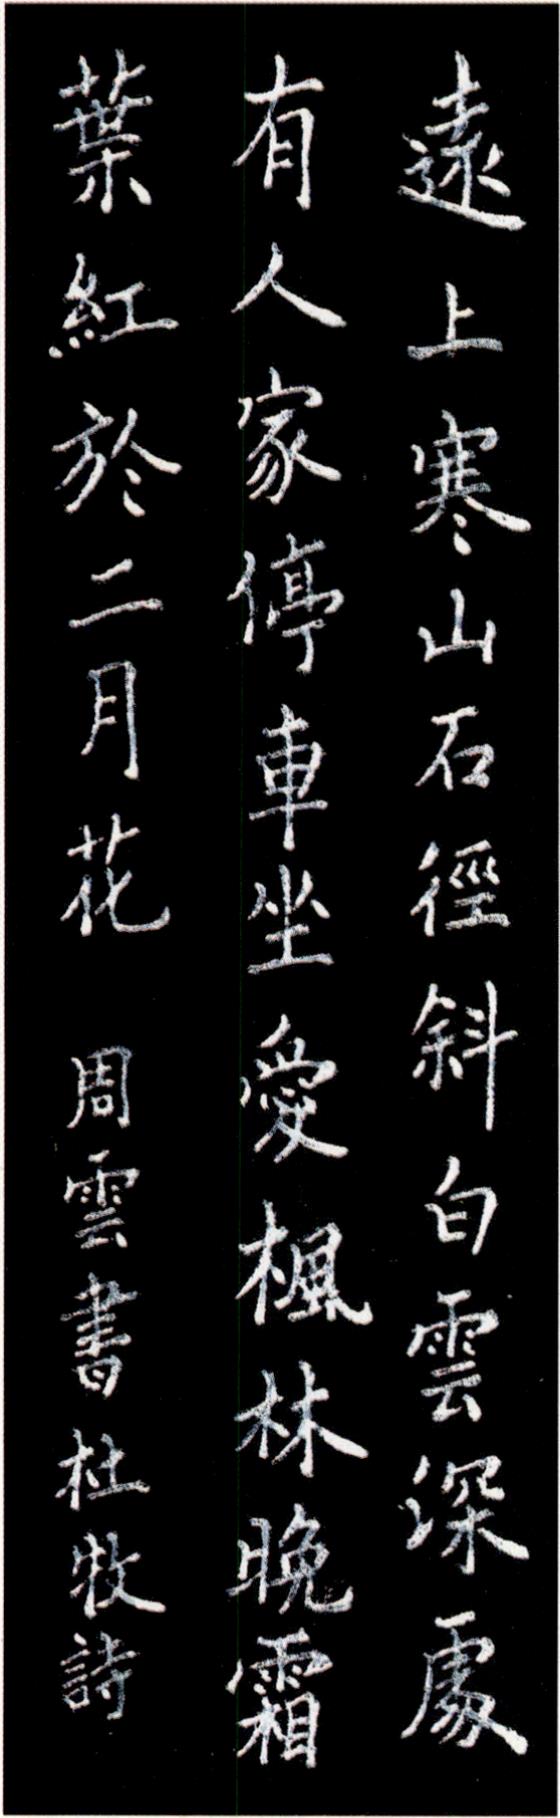 遠上寒山石徑斜白雲深處
有人家停車坐愛楓林晚霜
葉紅於二月花 周雲書杜牧詩